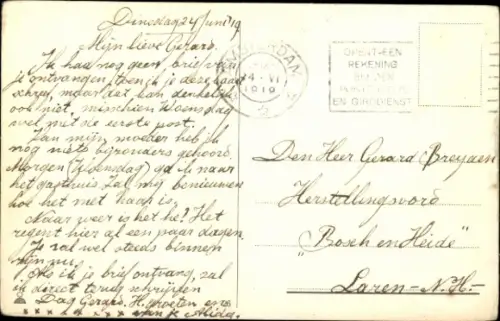 Dinsdag 24 Juni '19
Mijn lieve Gerard.
Ik had nog geen brief van
je ontvangen toen ik deze kaart
schreef, maar dat kan denkelijk
ook niet, misschien Woensdag
wel met de eerste post.
Van mijn moeder heb ik
nog niets bijzonders gehoord.
Morgen (Woensdag) ga ik naar
het gasthuis. Zal mij benieuwen
hoe het met haar is.
Naar weer is het he! Het
regent hier al een paar dagen.
Je zal wel steeds binnen
zijn nu.
Als ik je brief ontvang, zal
ik direct terug schrijven
Dag Gerard. H. groeten en
x x x x van je Alida.
AMSTERDAM
24 VI
1919
OPENT EEN
REKENING
BIJ DEN
EN GIRODIENST
Den Heer Gerard
Herstellingsoord
"Bosch en Heide"
Laren - N. H. -